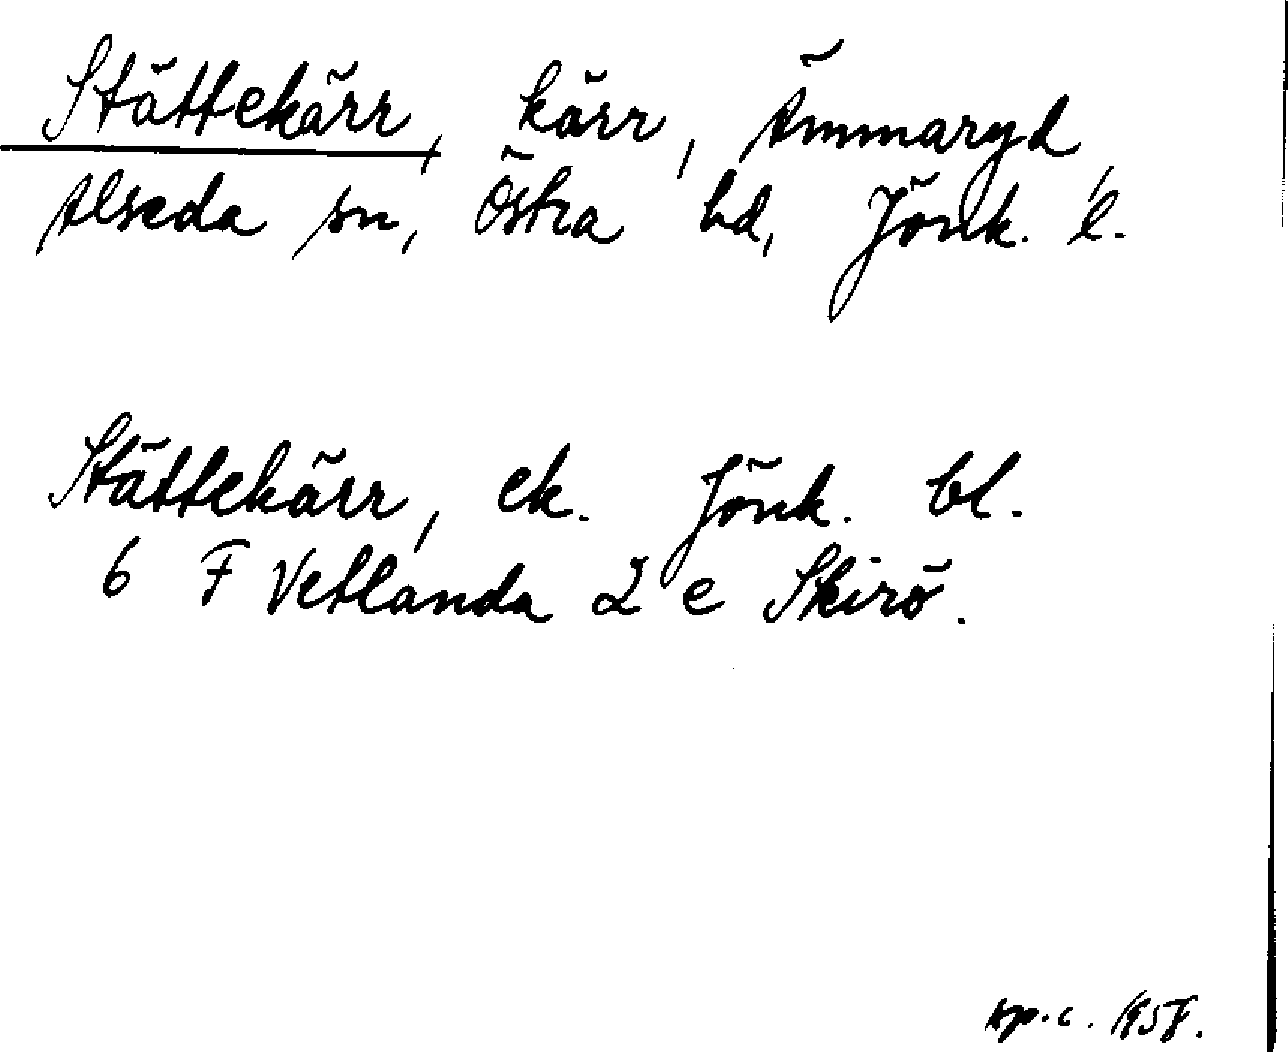 Stättekärr, kärr, Ämmaryd,
Alseda sn, Östra hd, Jönk. l.
Stättekärr, ek. Jönk. bl.
6 F Vetlanda 2 e Skirö.